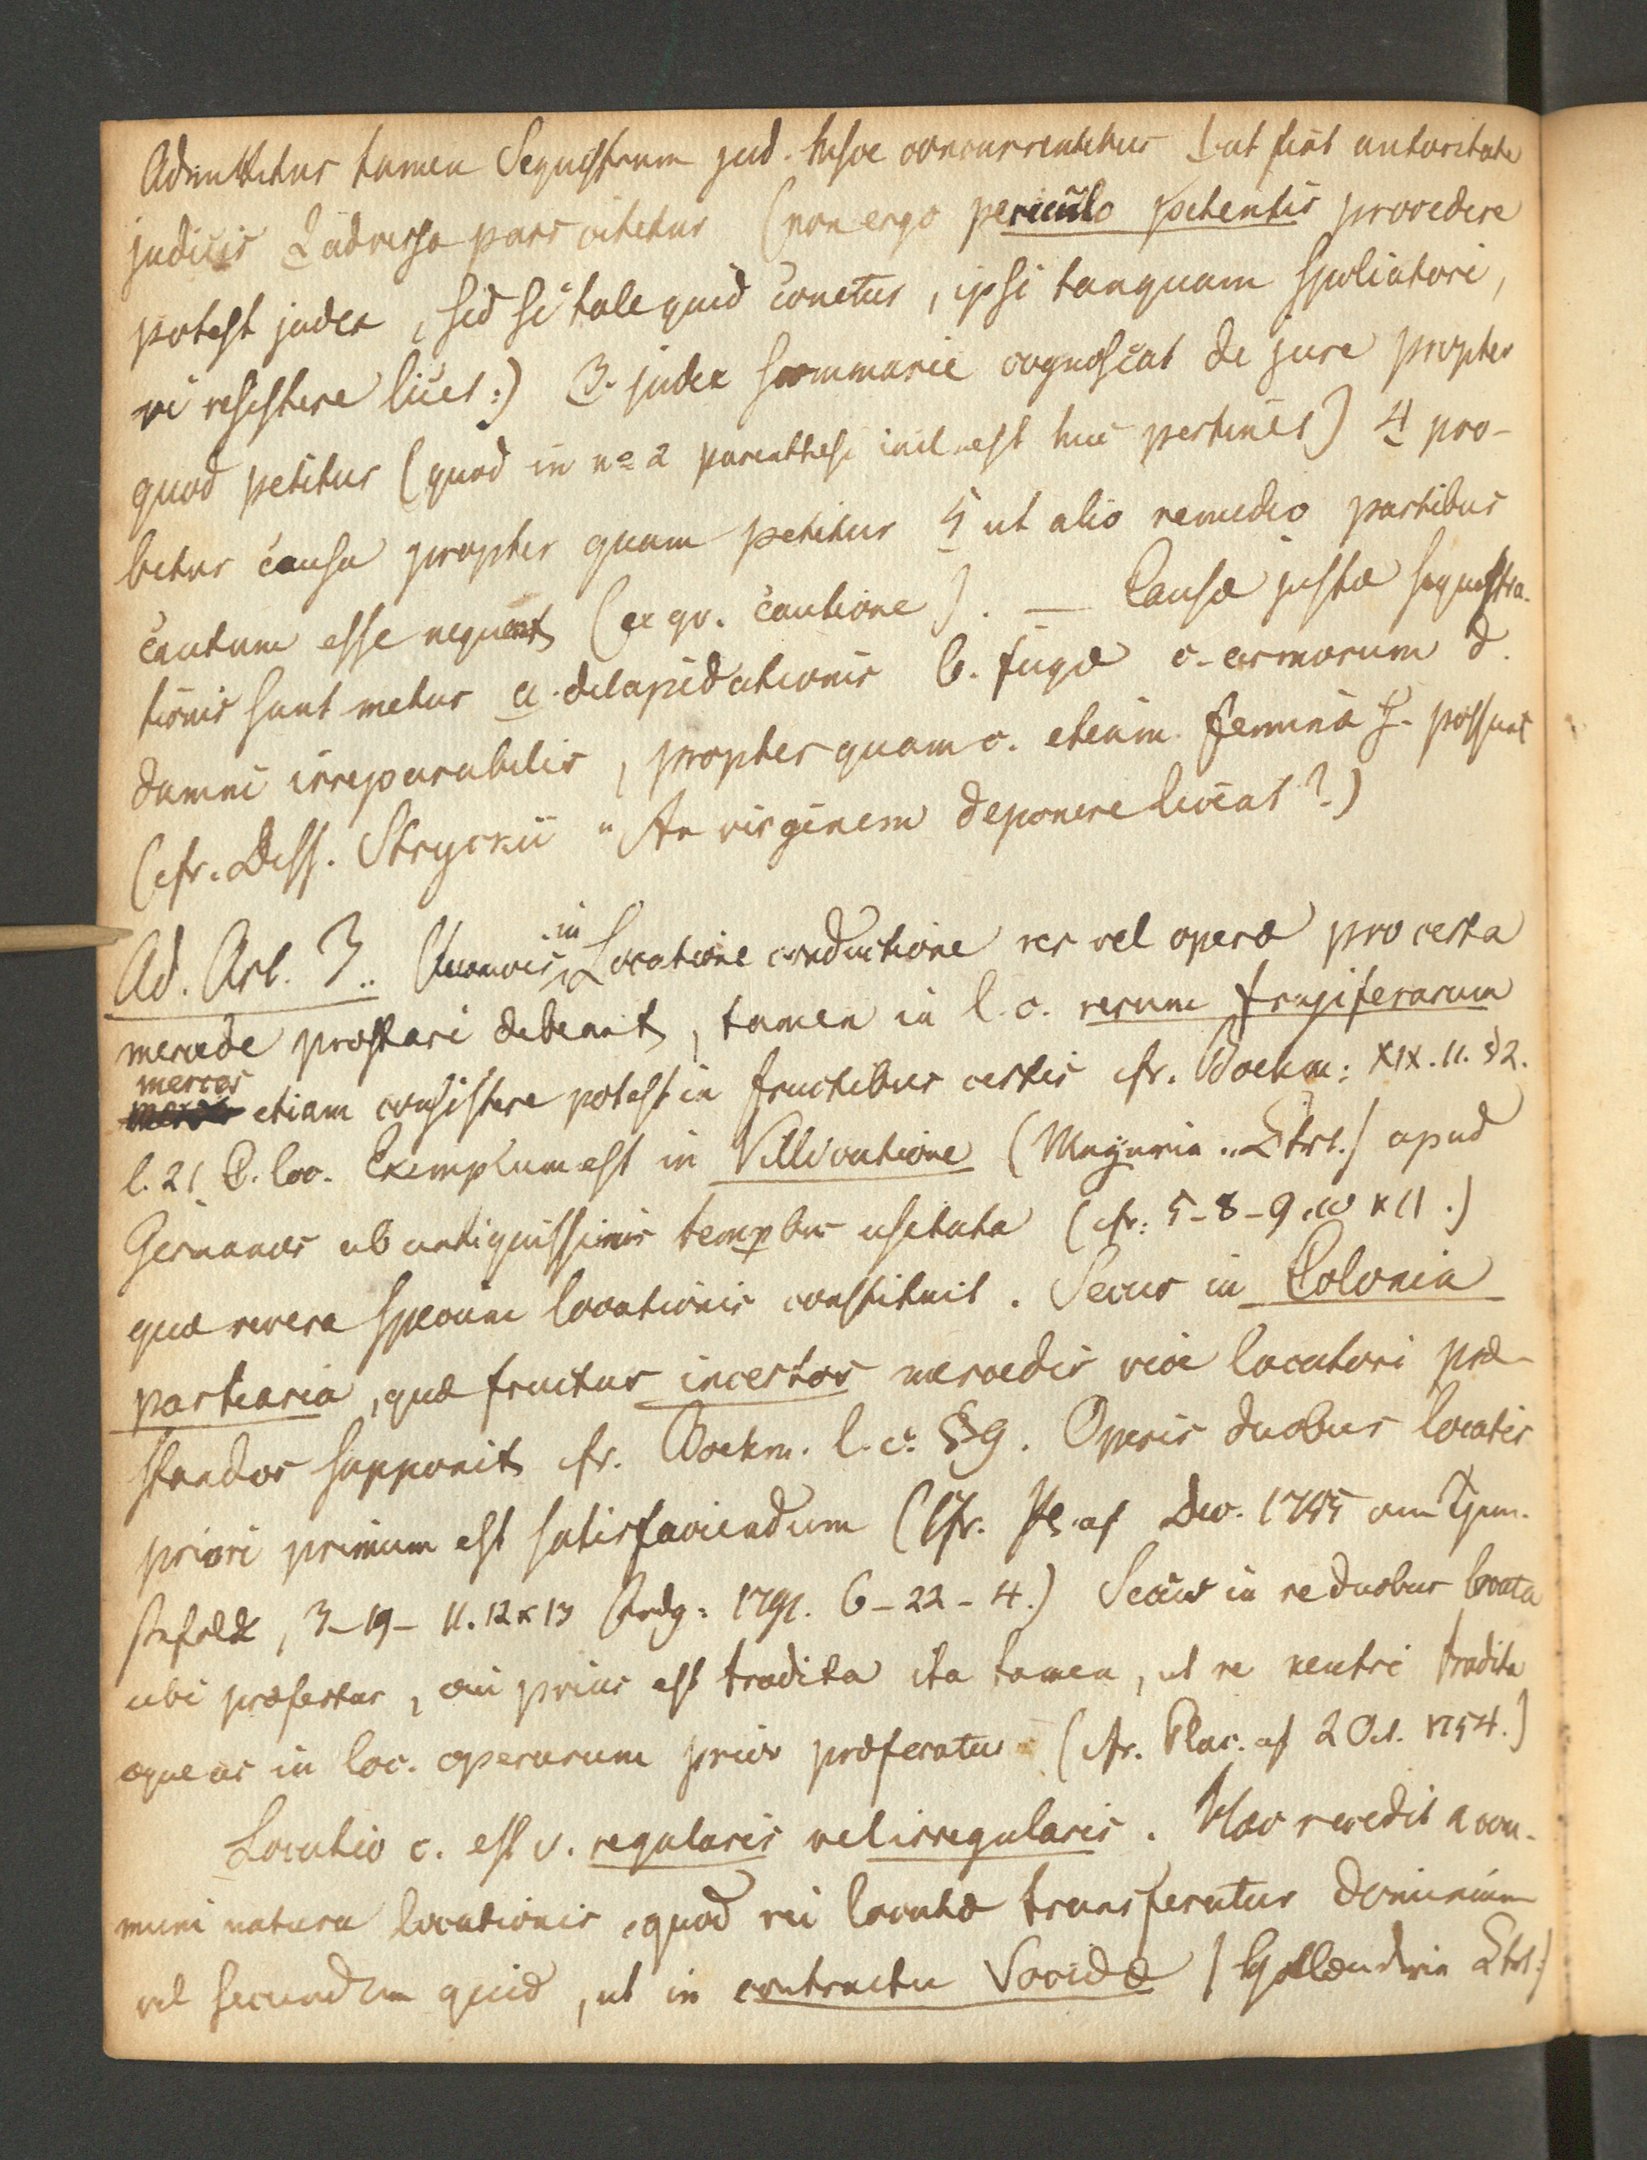 Admittitur tamen Sequestrum jud. hisce concurrentibus 1. ut fiat autoritate
judicis 2 adversa pars citetur (non ergo periculo petentis procedere
potest judex, sed si tale quid conetur, ipsi tanquam spoliatori,
vi resistere licet:) 3. judex summarie cognoscat de jure propter
quod petitur (quod in no 2 parenthesi incl. est huc pertinet) 4 pro-
betur causa propter quam petitur 5 ut alio remedio partibus
cautum esse nequeat (ex gr. cautione). — Causæ justæ sequestra-
tionis sunt metus a. dilapidationis b. fugæ c. armorum d.
damni irreparabilis, propter quam c. etiam femina s. possunt
(cfr. Diss. Stryckii "An virginem deponere liceat?)
Ad. Art. 3.. Quamvis in Locatione conductione res vel operæ pro certa
mercede præstari debeant, tamen in l. c. rerum frugiferarum
merces etiam consistere potest in fructibus certis cfr. Boehm: XIX. 11. §2.
l. 21 C. loc. Exemplum est in Villicatione (Meyeria .. Etrl.) apud
Germanos ab antiquissimis tempbus usitata (cfr: 5-8-9.10 & 11.)
quæ revera speciem locationis constituit. Secus in Colonia
partiaria, quæ fructus incertos mercedis vice locatori præ-
standos supponit cfr. Boehm. l. c. §9. Operis duobus locatis
priori primum est satisfaciendum (Cfr. Pl. af Dec. 1755 om Tjen-
stefolk, 3-19-11.12 & 13 Frdg: 1791. 6-22-4.) Secus in re duobus locata
ubi præfertur, cui prius est tradita ita tamen, ut re neutri tradita
æque ac in loc. operarum prior præferatur (cfr. Plac. af 2 Oct. 1754.)
Locatio c. est v. regularis vel irregularis. Hæc recedit a com-
muni natura locationis, quod rei locatæ transferatur dominium
vel secundum quid, ut in contractu Socidæ (Hollænderie Etrl:)